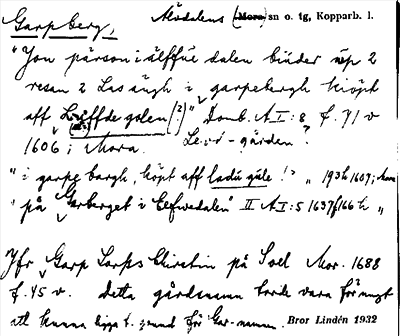 Garpberg, Älvdalens (Mora) sn o. tg, Kopparb. l.
"Jon pärson i älffue dalen biuder up 2
resan 2 Las ängh i garpebergh kiöpt
aff Leuffde galen (?)" Domb. A I: 8 f. 71 v
1606; Mora. Levd-gården?
"i garpe bergh, köpt aff ladu gåle!" " 193 h 1607; Mora
"på Garberget i Eefwedalen" II A I: 5 1637 f 166 h "
Jfr Garp Larss Christin på Soel Mor. 1688
f. 45 v. Detta gårdsnamn torde vara förmyst
att kunna ligga t. grund för Gar-namn. Bror Lindén 1932